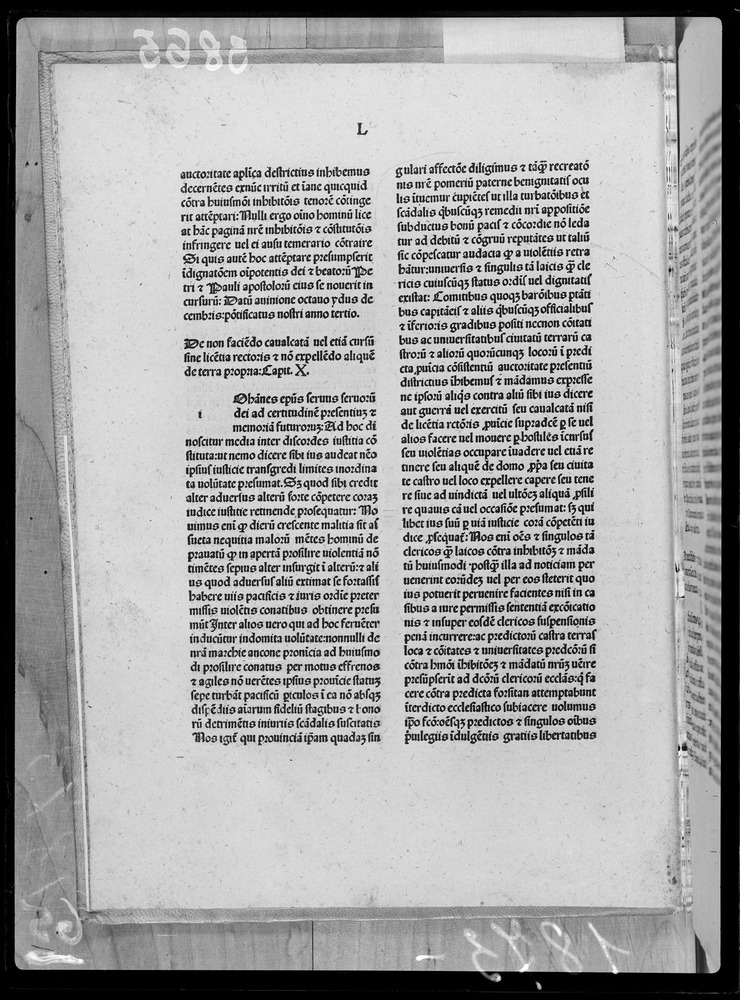 5865
L
auctoritate aplica destrictius inhibemus
decernẽtes exnũc irritũ et ĩane quicquid
cõtra huiusmõi inhibitõis tenorẽ cõtinge
rit attẽptari: Nulli ergo oĩno hominũ lice
at hãc paginã nrẽ inhibitõis ⁊ cõstitutõis
infringere uel ei ausu temerario cõtraire
Si quis autẽ hoc attẽptare presumpserit
ĩdignatõem oĩpotentis dei ⁊ beatorũ Pe
tri ⁊ Pauli apostolorũ eius se nouerit in
cursurũ: Datũ auinione octauo ydus de
cembris: põtificatus nostri anno tertio.
De non faciẽdo caualcatã uel etiã cursũ
sine licẽtia rectoris ⁊ nõ expellẽdo aliquẽ
de terra propria: Capit. X.
i
Ohãnes epũs seruus seruorũ
dei ad certitudinẽ presentiuꝫ ⁊
memoriã futuroruꝫ: Ad hoc di
noscitur media inter discordes iustitia cõ
stituta: ut nemo dicere sibi ius audeat nẽo
ipsius iusticie transgredi limites inordina
ta uolũtate presumat. Sꝫ quod sibi credit
alter aduersus alterũ forte cõpetere coraꝫ
iudice iustitie retinende prosequatur: No
uimus enĩ ꝙ dierũ crescente malitia sit as
sueta nequitia malorũ mẽtes hominũ de
prauatũ ꝙ in apertã prosilire uiolentiã nõ
timẽtes sepius alter insurgit ĩ alterũ: ⁊ ali
us quod aduersus aliũ extimat se fortassis
habere uiis pacificis ⁊ iuris ordĩe preter
missis uiolẽtis conatibus obtinere presu
mũt Inter alios uero qui ad hoc feruẽter
inducũtur indomita uolũtate: nonnulli de
nrã marchie ancone prouĩcia ad huiusmo
di prosilire conatus per motus effrenos
⁊ agiles nõ uerẽtes ipsius prouĩcie statuꝫ
sepe turbãt pacificũ ꝑiculos ĩ ea nõ absqꝫ
dispẽdiis aĩarum fideliũ stagibus ⁊ bono
rũ detrimẽtis iniuriis scãdalis suscitatis
Nos igit̃ qui prouinciã ipãm quadaꝫ sin
gulari affectõe diligĩmus ⁊ tãꝙ recreatõ
nis nrẽ pomeriũ paterne benignitatis ocu
lis ĩtuemur cupiẽtes ut illa turbatõibus et
scãdalis q̃busciqꝫ remedii nrĩ appositiõe
subductus bonũ pacis ⁊ cõcordie nõ leda
tur ad debitũ ⁊ cõgruũ reputãtes ut taliũ
sic cõpescatur audacia ꝙ a uiolẽtiis retra
hãtur: uniuersis ⁊ singulis tã laicis ꝙ cle
ricis cuiuscũqꝫ status ordĩs uel dignitatis
existat: Comitibus quoqꝫ barõibus ptãti
bus capitãeis ⁊ aliis q̃buscũqꝫ officialibus
⁊ ĩferioris gradibus positi necnon cõitati
bus ac uniuersitatibus ciuitatũ terrarũ ca
strorũ ⁊ aliorũ quorũcunqꝫ locorũ ĩ predi
cta ꝓuĩcia cõsistentiũ auctoritate presentiũ
districtius ĩhibemus ⁊ mãdamus expresse
ne ipsorũ aliqs contra aliũ sibi ius dicere
aut guerrã uel exercitũ seu caualcatã nisi
de licẽtia rctõris ꝓuĩcie supradcẽ ꝑ se uel
alios facere uel mouere ꝑ hostiles ĩcursus
seu uiolẽtias occupare ĩuadere uel etiã re
tinere seu aliquẽ de domo ꝓpa seu ciuita
te castro uel loco expellere capere seu tene
re siue ad uindictã uel ultõeꝫ aliquã ꝓsili
re quauis cã uel occasiõe presumat: sꝫ qui
libet ius suũ ꝑ uiã iusticie corã cõpetẽti iu
dice ꝓsequat̃: Nos enĩ oẽs ⁊ singulos tã
clericos ꝙ laicos cõtra inhibitõꝫ ⁊ mãda
tũ huiusmodi postꝙ illa ad noticiam per
uenerint eorũdeꝫ uel per eos steterit quo
ius potuerit peruenire facientes nisi in ca
sibus a iure permissis sententiã excõicatio
nis ⁊ insuper eosdẽ clericos suspensionis
penã incurrere: ac predictorũ castra terras
loca ⁊ cõitates ⁊ uniuersitates predcõrũ si
cõtra hmõi ĩhibitõeꝫ ⁊ mãdatũ nrũꝫ uẽire
presũpserĩt ad dcõrũ clericorũ ecclãs: q̃ fa
cere cõtra predicta forsitan attemptabunt
ĩterdicto ecclesiastico subiacere uolumus
ip̃o fcõ: oẽsqꝫ predictos ⁊ singulos oĩbus
ꝓuilegiis ĩdulgẽtiis gratiis libertatibus